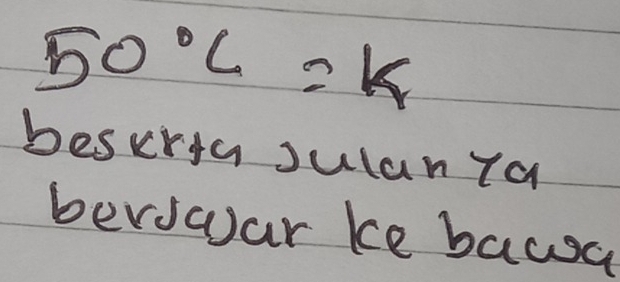 50°C = K
beserta Julanya
berjajar ke bawa